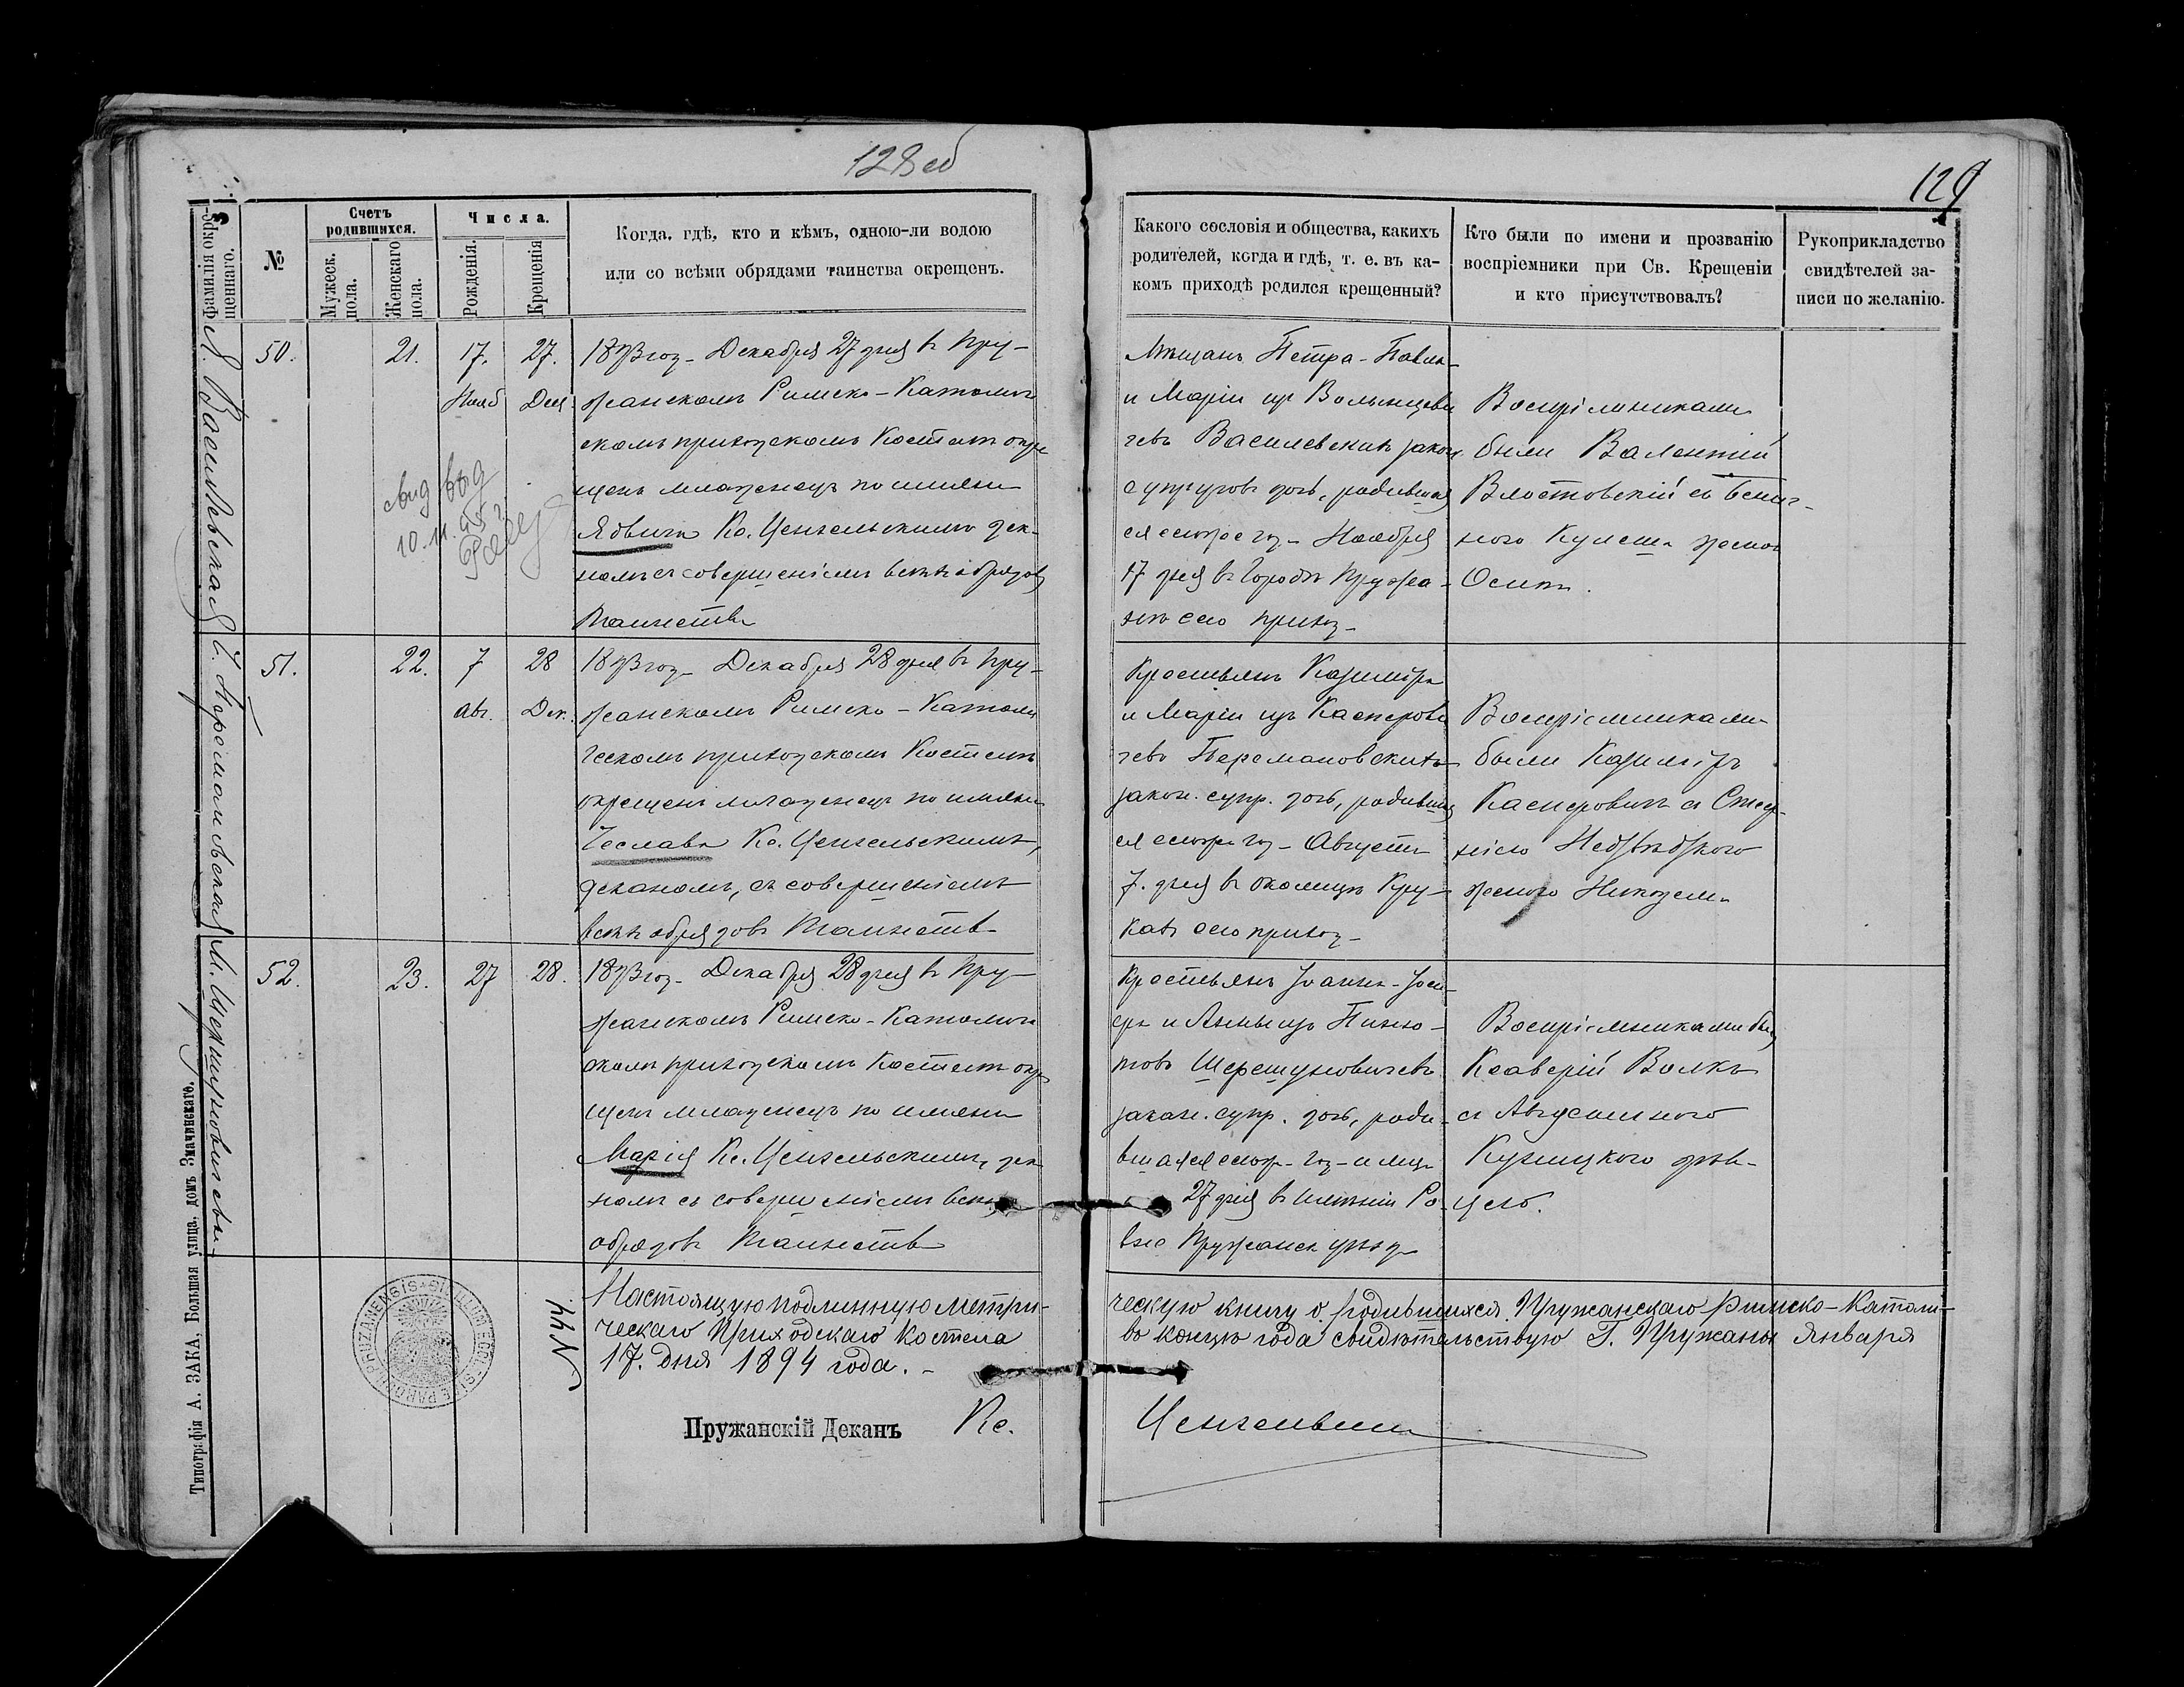 128 об
129
Фамилія окре-
щеннаго.
№
Счетъ
родившихся.
Мужеск.
пола.
Женскаго
пола.
Числа.
Рожденія.
Крещенія
Когда, гдѣ, кто и кѣмъ, одною-ли водою
или со всѣми обрядами таинства окрещенъ.
Какого сословія и общества, какихъ
родителей, когда и гдѣ, т. е. въ ка-
комъ приходѣ родился крещенный?
Кто были по имени и прозванію
воспріемники при Св. Крещеніи
и кто присутствовалъ?
Рукоприкладство
свидѣтелей за-
писи по желанію.
Я. Василевская
50.
21.
17.
Нояб
27.
Дек.
свид выд
10.11.
1893 год_ Декабря 27 дня въ Пру-
жанскомъ Римско-Католич
скомъ приходскомъ Костелѣ окре
щенъ младенецъ по имени
Ядвига Кс. Ценгельскимъ дек-
номъ съ совершеніемъ всѣхъ обрядовъ
Таинства
Мѣщанъ Петра-Павла
и Маріи изъ Волынцеви
чевъ Василевскихъ закон.
супруговъ дочь, родивша
ся сего же год_ Ноября
17 дня въ Городѣ Пружа-
нѣ сего приход_
Воспріемниками
были Валентій
Влостовскій съ
ною Кулеша женою
Осипа.
Ч. Парсмановская
51.
22.
7
Авг.
28
Дек.
1893 год_ Декабря 28 дня въ Пру-
жанскомъ Римско-Католи
ческомъ приходскомъ Костелѣ
окрещенъ младенецъ по имени
Чеслава Кс. Ценгельскимъ,
деканомъ, съ совершеніемъ
всѣхъ обрядовъ Таинств_
Крестьянъ Казиміра
и Маріи изъ Касперови
чевъ
закон. супр. дочь, родивша
ся сего же год_ Августа
7. дня въ околицѣ Кру-
кахъ сего приход_
Воспріемниками
были Казиміръ
Касперовичъ съ Стеф-
ніею
женою Никодема
М. Шерешуновичевна
52.
23.
27
28.
1893 год_ Декабря 28 дня въ Пру-
жанскомъ Римско-Католич
скомъ приходскомъ Костелѣ окре
щенъ младенецъ по имени
Марія Кс. Ценгельскимъ, дек
номъ съ совершеніемъ всѣхъ
обрядовъ Таинств
Крестьянъ Іоанна-Іоси-
фа и Анны изъ Пиню-
товъ Шерешуновичевъ
закон. супр. дочь, роди-
вшаяся сего же год_ и мца
27 дня въ имѣніи Ро-
Пружанск уѣзд_
Воспріемниками были
Ксаверій Волкъ
съ
Кузницкою дѣви-
цею.
Настоящую подлинную метри-
ческую книгу о родившихся Пружанскаго Римско-Католи-
ческаго Приходскаго Костела
въ концѣ года свидѣтельствую Г. Пружаны Января
17. дня 1894 года.
N 44
Пружанскій Деканъ
Кс.
Ценгельск
Типографія А. ЗАКА, Большая улица, домъ Значинскаго.